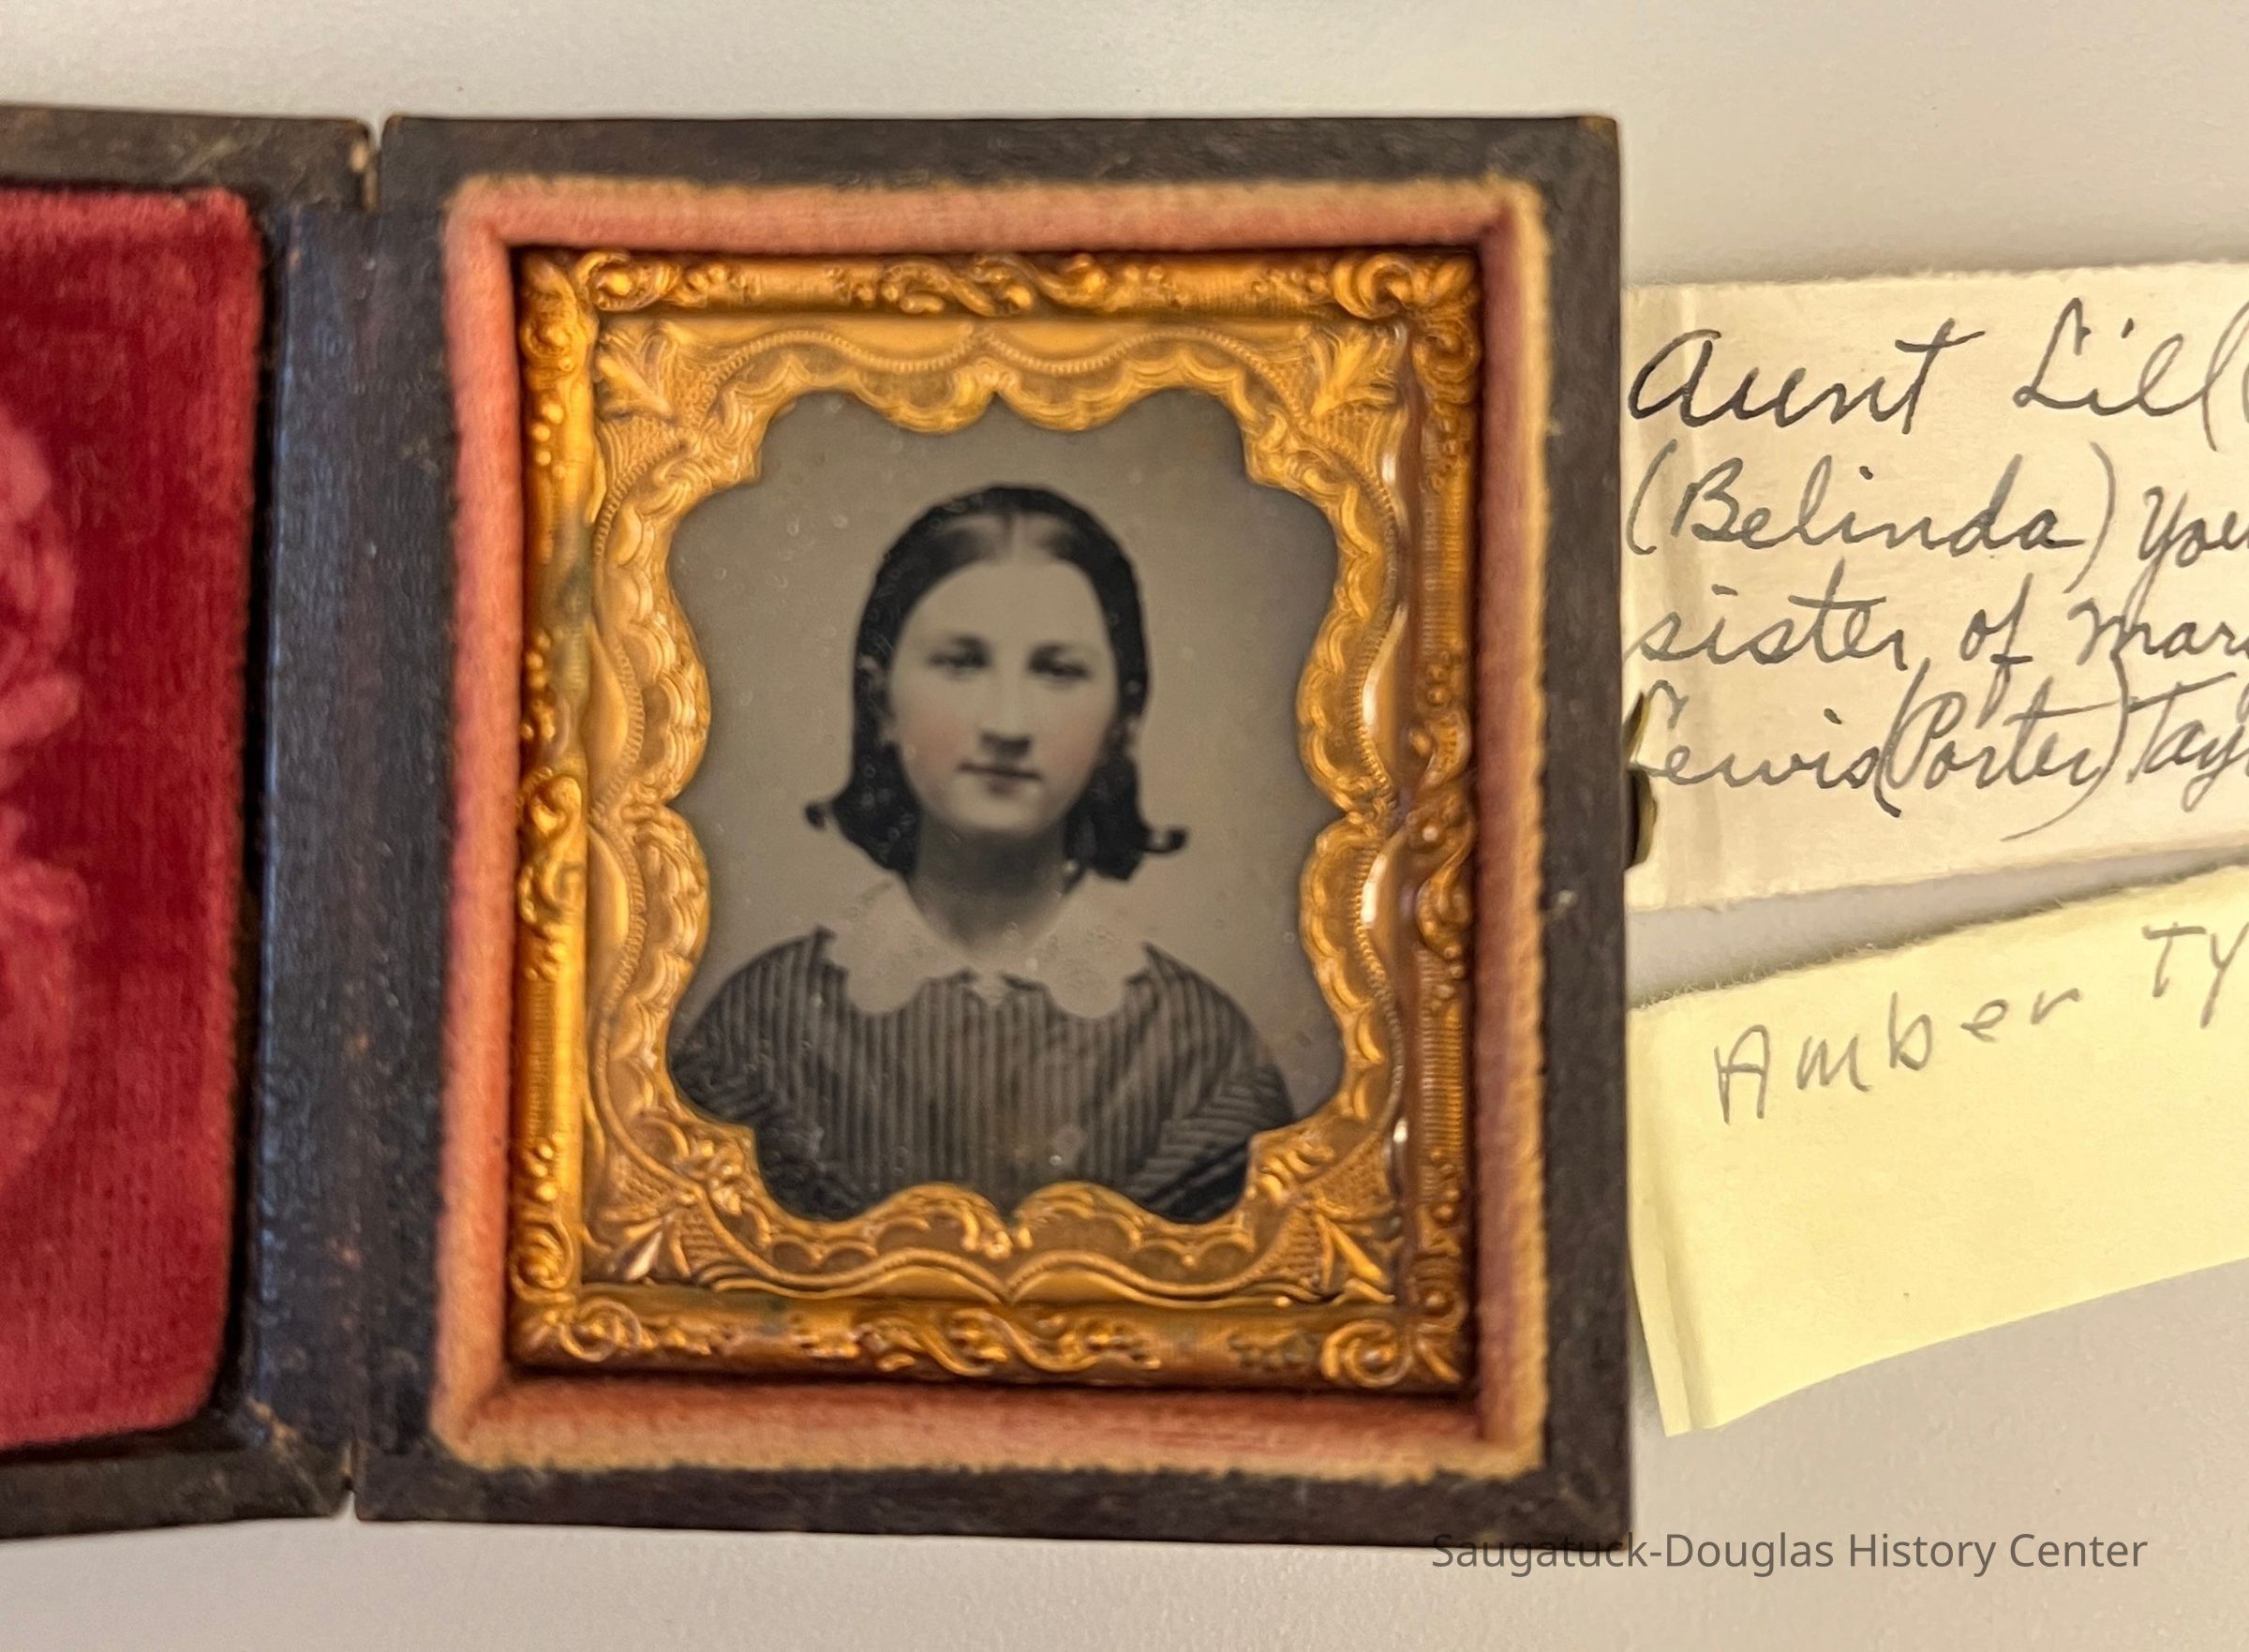 Aunt Lill (
(Belinda) you
sister of Mary
Lewis (Porter) Tay
Amber TY
Saugatuck-Douglas History Center